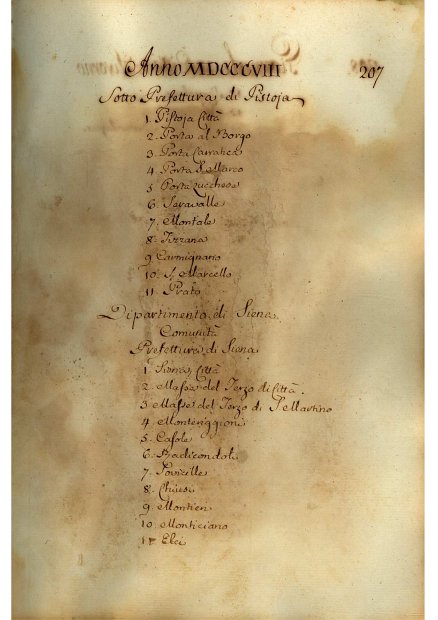 Anno MDCCCVIII 207
Sotto Prefettura di Pistoja
1. Pistoja Città
2. Porta al Borgo
3. Porta Carratica
4. Porta S. Marco
5 Porta Lucchese
6. Seravalle
7. Montale
8. Tizzana
9 Carmignano
10. S. Marcello
11 Prato
Dipartimento di Siena.
Comunità
Prefettura di Siena
1. Siena, Città
2 Masse del Terzo di Città.
3 Masse del Terzo di S. Martino
4. Monteriggioni
5. Casole
6. Radicondoli
7. Sovicille
8. Chiusi
9. Montieri
10. Monticiano
11 Elci